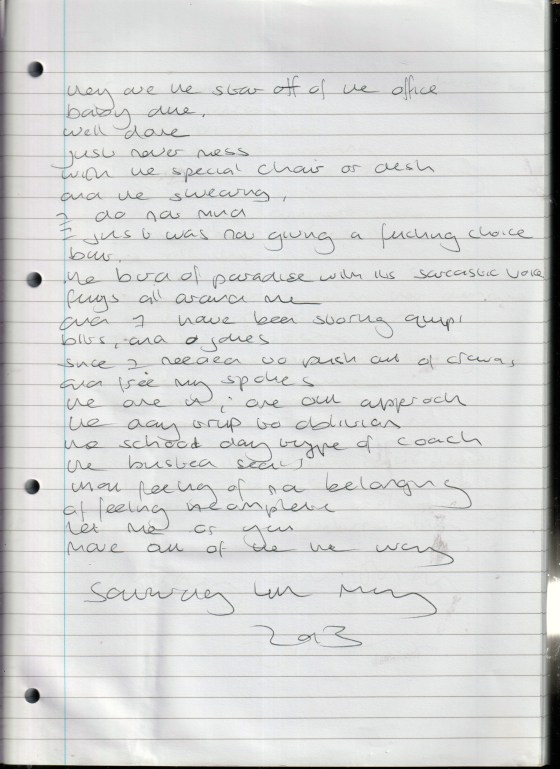 they are the star off of the office
baby one.
well done
just never mess
with the special chair or desk
and the swearing,
I do not mind
I just was not giving a fucking choice
but.
the bird of paradise with its sarcastic voice
flings all around me
and I have been storing
bits, and jokes
since I needed to push out of crowd,
and free my spokes
we are in, are our approach
the day trip to oblivion
the school day type of coach
the busted seat,
that feeling of not belonging
of feeling incomplete
let me or you
move out of the the way
Saturday 4th May
2013